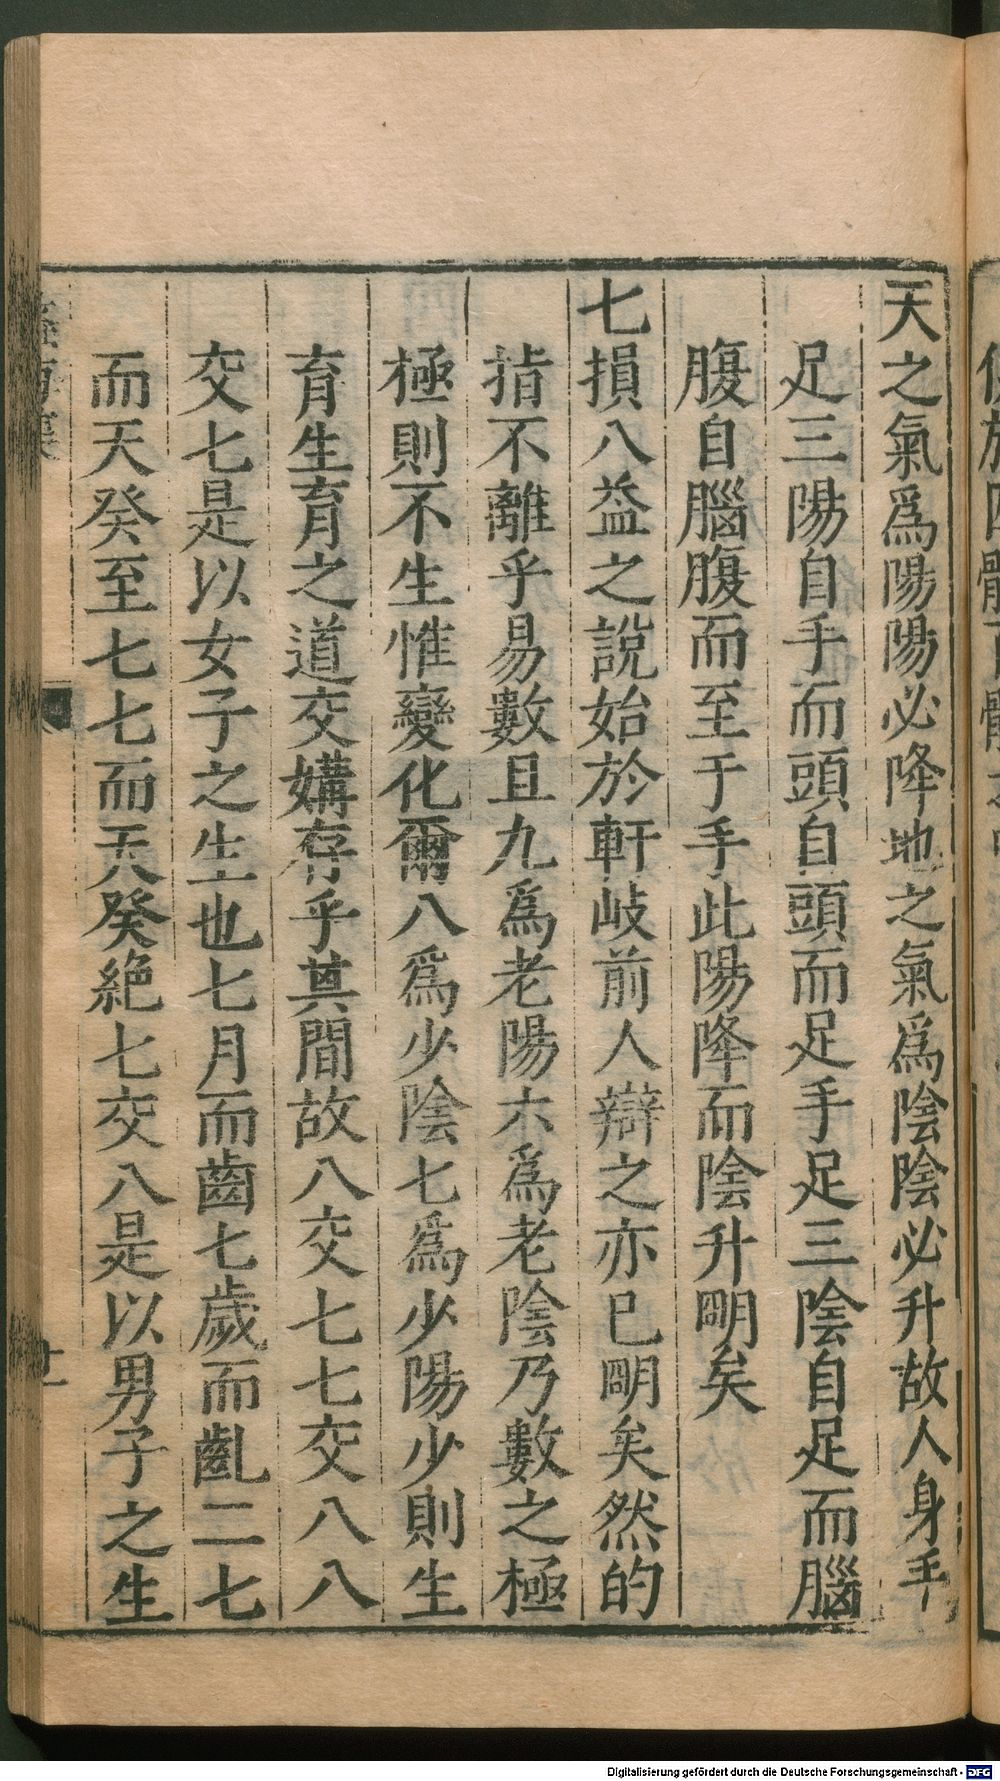 天之氣爲陽陽必降地之氣爲陰陰必升故人身手
足三陽自手而頭自頭而足手足三陰自足而腦
腹自腦腹而至于手此陽降而陰升明矣
七損八益之說始於軒岐前人辯之亦已明矣然的
指不離乎易數且九爲老陽六爲老陰乃數之極
極則不生惟變化爾八爲少陰七爲少陽少則生
育生育之道交媾存乎其間故八交七七交八八
交七是以女子之生也七月而齒七歲而齔二七
而天癸至七七而天癸絕七交八是以男子之生
Digitalisierung gefördert durch die Deutsche Forschungsgemeinschaft - DFG